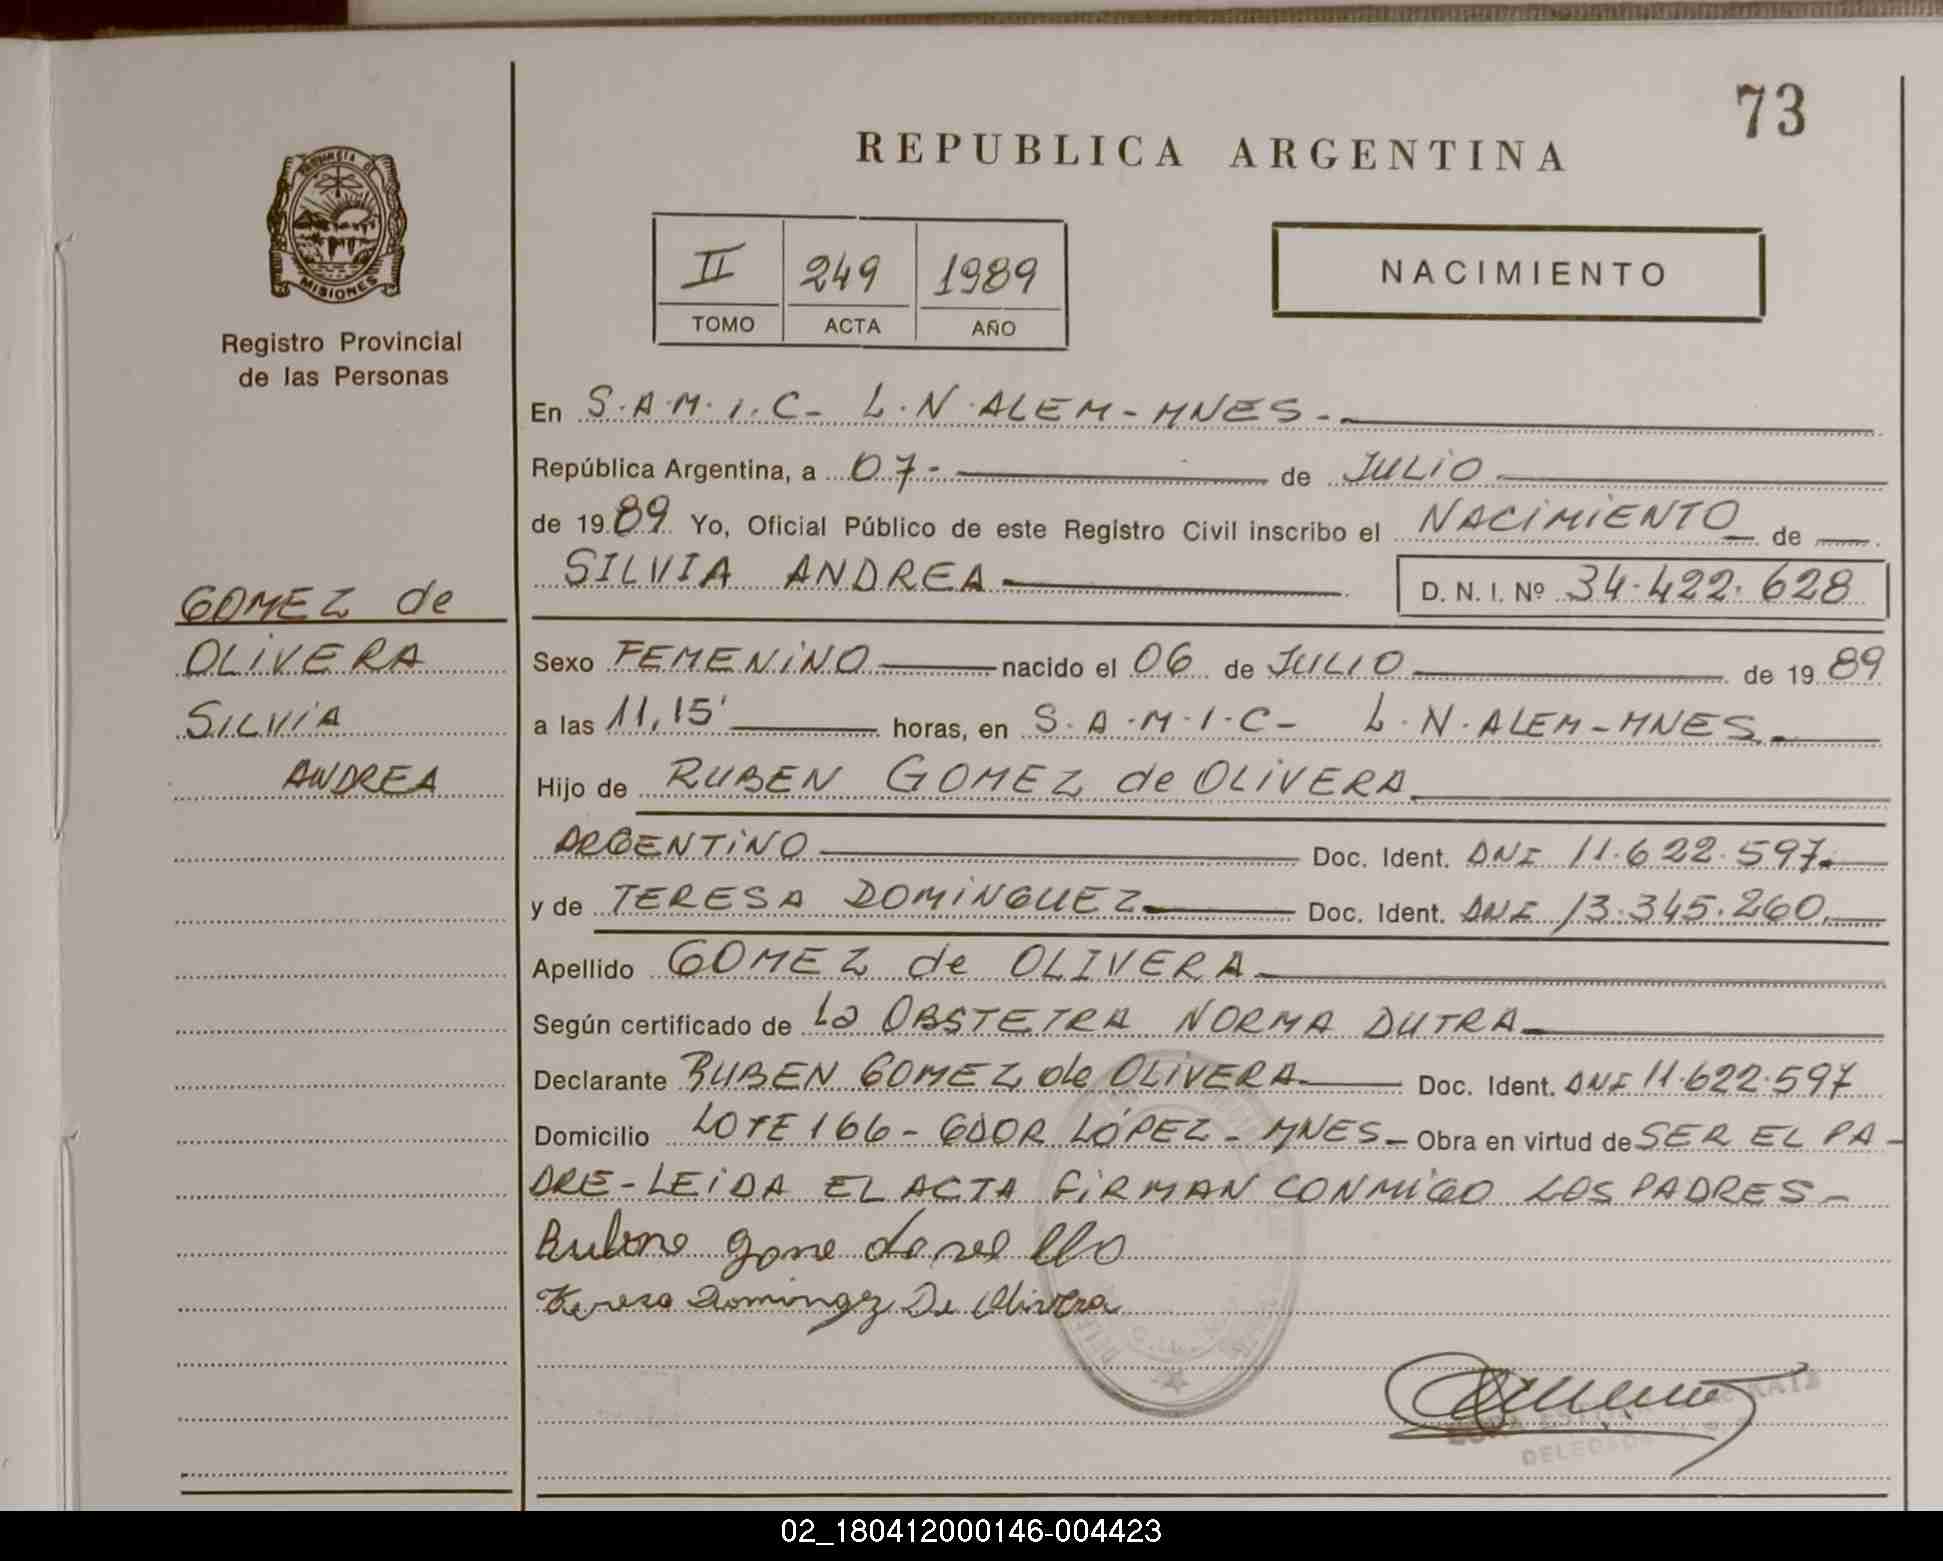 73
REPUBLICA ARGENTINA
MISIONES
Registro Provincial
de las Personas
II 249 1989
TOMO ACTA AÑO
NACIMIENTO
En S.A.M.I.C- L.N.ALEM-MNES-
República Argentina, a 07- de JULIO
de 1989 Yo, Oficial Público de este Registro Civil inscribo el NACIMIENTO de
SILVIA ANDREA D. N. I. Nº 34.422.628
GOMEZ de
OLIVERA
SILVIA
ANDREA
Sexo FEMENINO nacido el 06 de JULIO de 1989
a las 11,15' horas, en S.A.M.I.C- L.N.ALEM-MNES.
Hijo de RUBEN GOMEZ de OLIVERA
ARGENTINO Doc. Ident. DNI 11.622.597.
y de TERESA DOMINGUEZ Doc. Ident. DNI 13.345.260.
Apellido GOMEZ de OLIVERA
Según certificado de La OBSTETRA NORMA DUTRA
Declarante RUBEN GOMEZ de OLIVERA Doc. Ident. DNI 11.622.597
Domicilio LOTE 166-GDOR LÓPEZ-MNES- Obra en virtud de SER EL PA-
DRE-LEIDA EL ACTA FIRMAN CONMIGO LOS PADRES-
Teresa Dominguez De Olivera
02_180412000146-004423